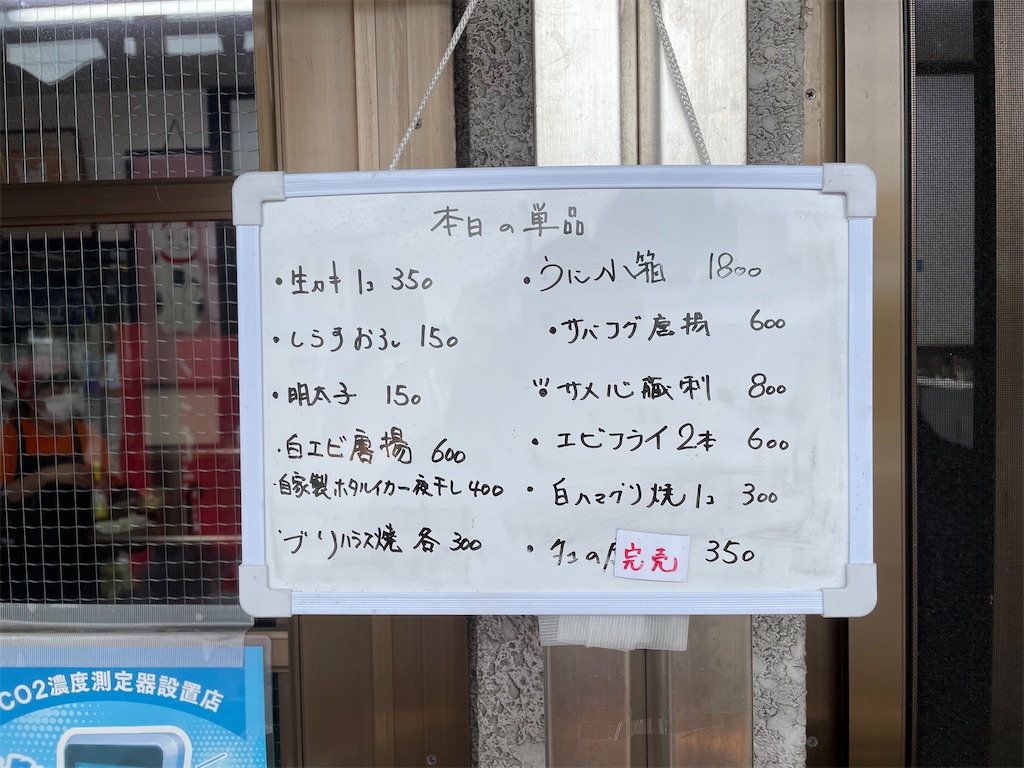 本日の単品
・生カキ 1コ 350
・しらすおろし 150
・明太子 150
・白エビ唐揚 600
・自家製ホタルイカ一夜干し 400
・ブリハラス焼 各300
・うに小箱 1800
・サバフグ唐揚 600
サメ心臓刺 800
・エビフライ2本 600
・白ハマグリ焼 1コ 300
・タコの 完売 350
CO2濃度測定器設置店